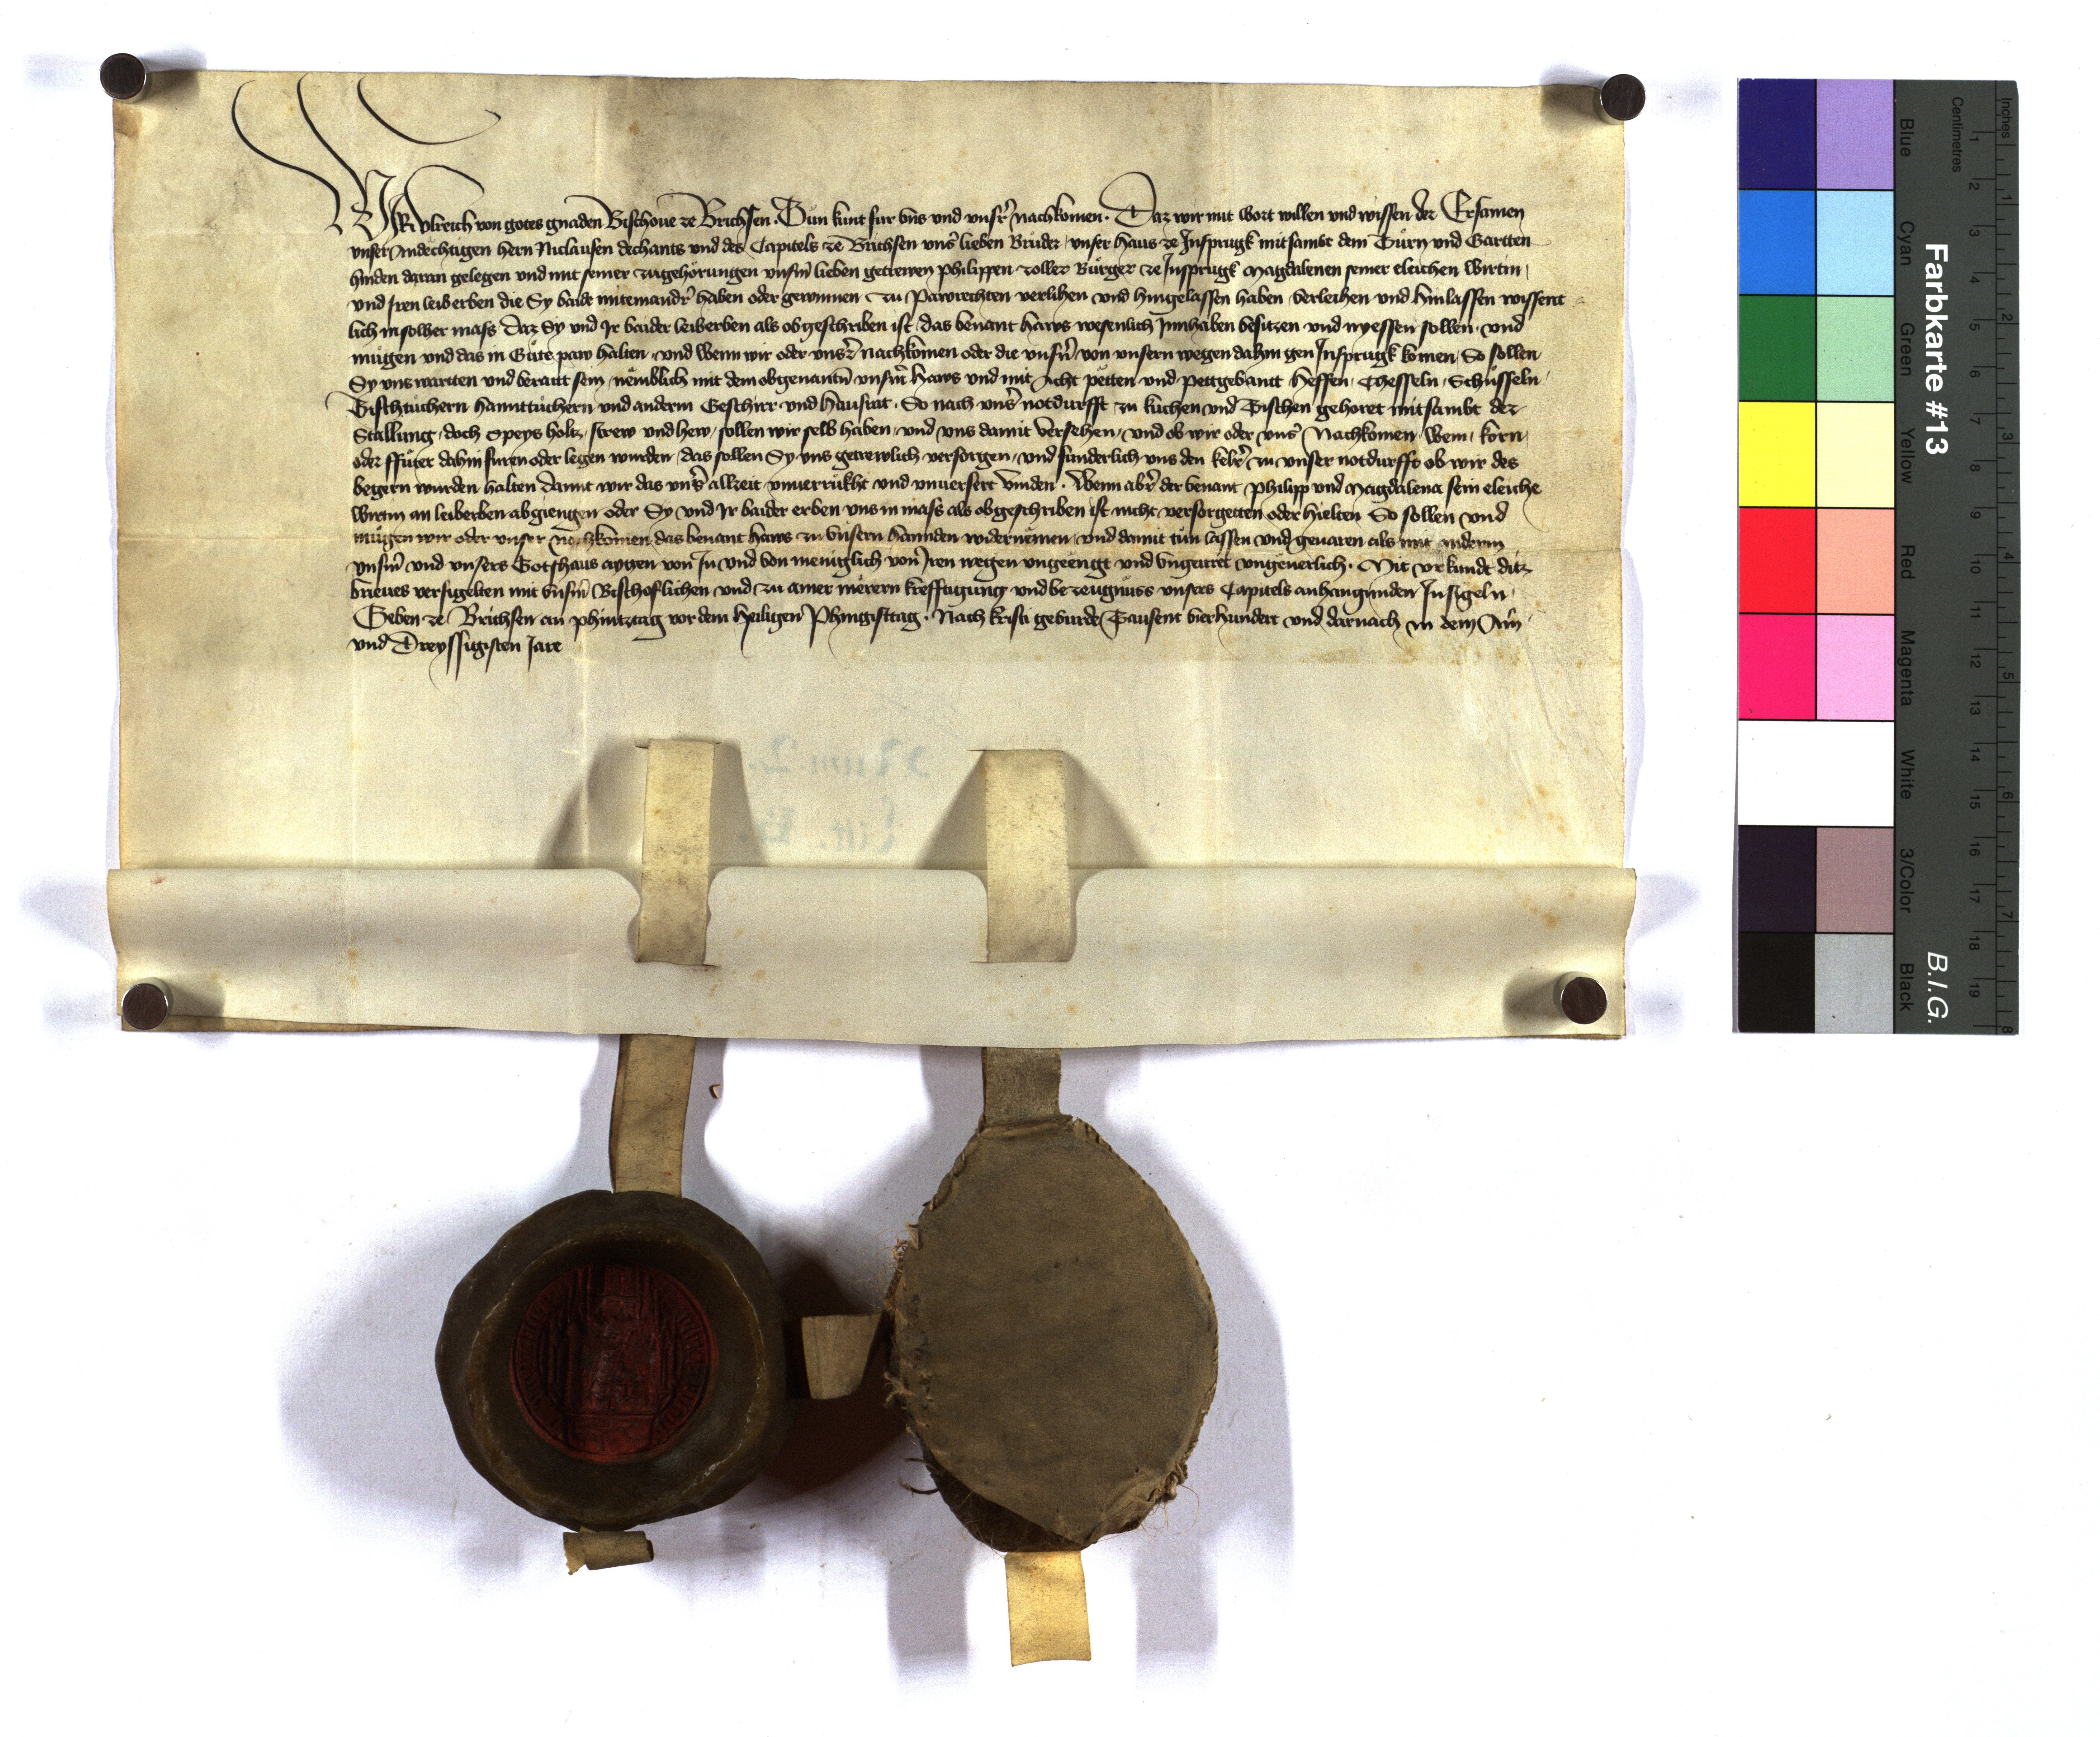 WIR Vlreich von gotes gnaden Bischoue ze Brichsen. Tůn kunt fur vns vnd vnsr̄ nachkomen. Daz wir mit wort willen vnd wissen der Ersamen
vnser Andechtigen hern Niclausen dechants vnd des Capitels ze Brichsen vnsr̄ lieben Brüder, vnser haus ze Insprugk mitsambt dem Tůrn vnd Gartten
hinden daran gelegen vnd mit seiner zugehörungen vnsm̄ lieben getrewen Philippen zoller Burger ze Insprugk Magdalenen seiner eleichen wirtin,
vnd Iren leiberben die Sy baide miteinandr̄ haben oder gewinnen zu Pawrechten verlihen vnd hingelassen haben verleihen vnd hinlassen wissent
lich in solher mass Daz Sy vnd Ir baider leiberben als obgeschriben ist, das benant haws wesenlich Innhaben besitzen vnd nyessen sollen vnd
mügen vnd das in Güte paw halten, vnd wenn wir oder vnsr̄ nachkomen oder die vnsn̄ von vnsern wegen dahin gen Insprugk komen, So sollen
Sy vns wartten vnd beraitt sein, nemblich mit dem obgenantn̄ vnsm̄ haws vnd mit Acht petten vnd pettgewantt heffen, Chesseln, Schüsseln,
Tischtüchern hannttüchern vnd anderm Geschirr vnd hausrat. So nach vnsr̄ notdurfft zu kuchen vnd Tischen gehoret mitsambt der
Stallung, doch Speys holtz, strew vnd hew, sollen wir selb haben, vnd vns damit versehen, vnd ob wir oder vnsr̄ Nachkomen, Wein, korn,
oder ffuter dahin furen oder legen wurden, das sollen Sy vns getrewlich versorgen, vnd sunderlich vns den kelr̄ zu vnser notdurfft ob wir des
begern wurden halten damit wir das vnsr̄ allzeit vnuerrukht vnd vnuersert vinden. Wenn abr̄ der benant Philipp vnd Magdalena sein eleiche
wirtin an leiberben abgiengen oder Sy vnd Ir baider erben vns in mass als obgeschriben ist nicht versorgetten oder hielten So sollen vnd
mügen wir oder vnser nachkomen das benant haws zu vnsern hannden widernemen vnd damit tůn lassen vnd geuaren als mit anderm
vnsm̄ vnd vnsers Gotshaus aygen von In vnd von meniglich von Iren wegen vngeengt vnd vngeirret vngeuerlich. Mit vrkundt ditz
brieues versigelten mit vnsm̄ Bischoflichen vnd zu ainer merern krefftigung vnd bezeugnuss vnsers Capitels anhangunden Insigeln,
Geben ze Brichsen an phintztag vor dem heiligen Phingsttag. Nach kristi geburde Tausent vierhundert vnd darnach in dem Ain
vnd Dreyssigisten Jare
Num 2.
Litt. B.
Farbkarte #13
B.I.G.
Centimetres
Inches
Blue
Cyan
Green
Yellow
Red
Magenta
White
3/Color
Black
1 2 3 4 5 6 7 8 9 10 11 12 13 14 15 16 17 18 19
1 2 3 4 5 6 7 8